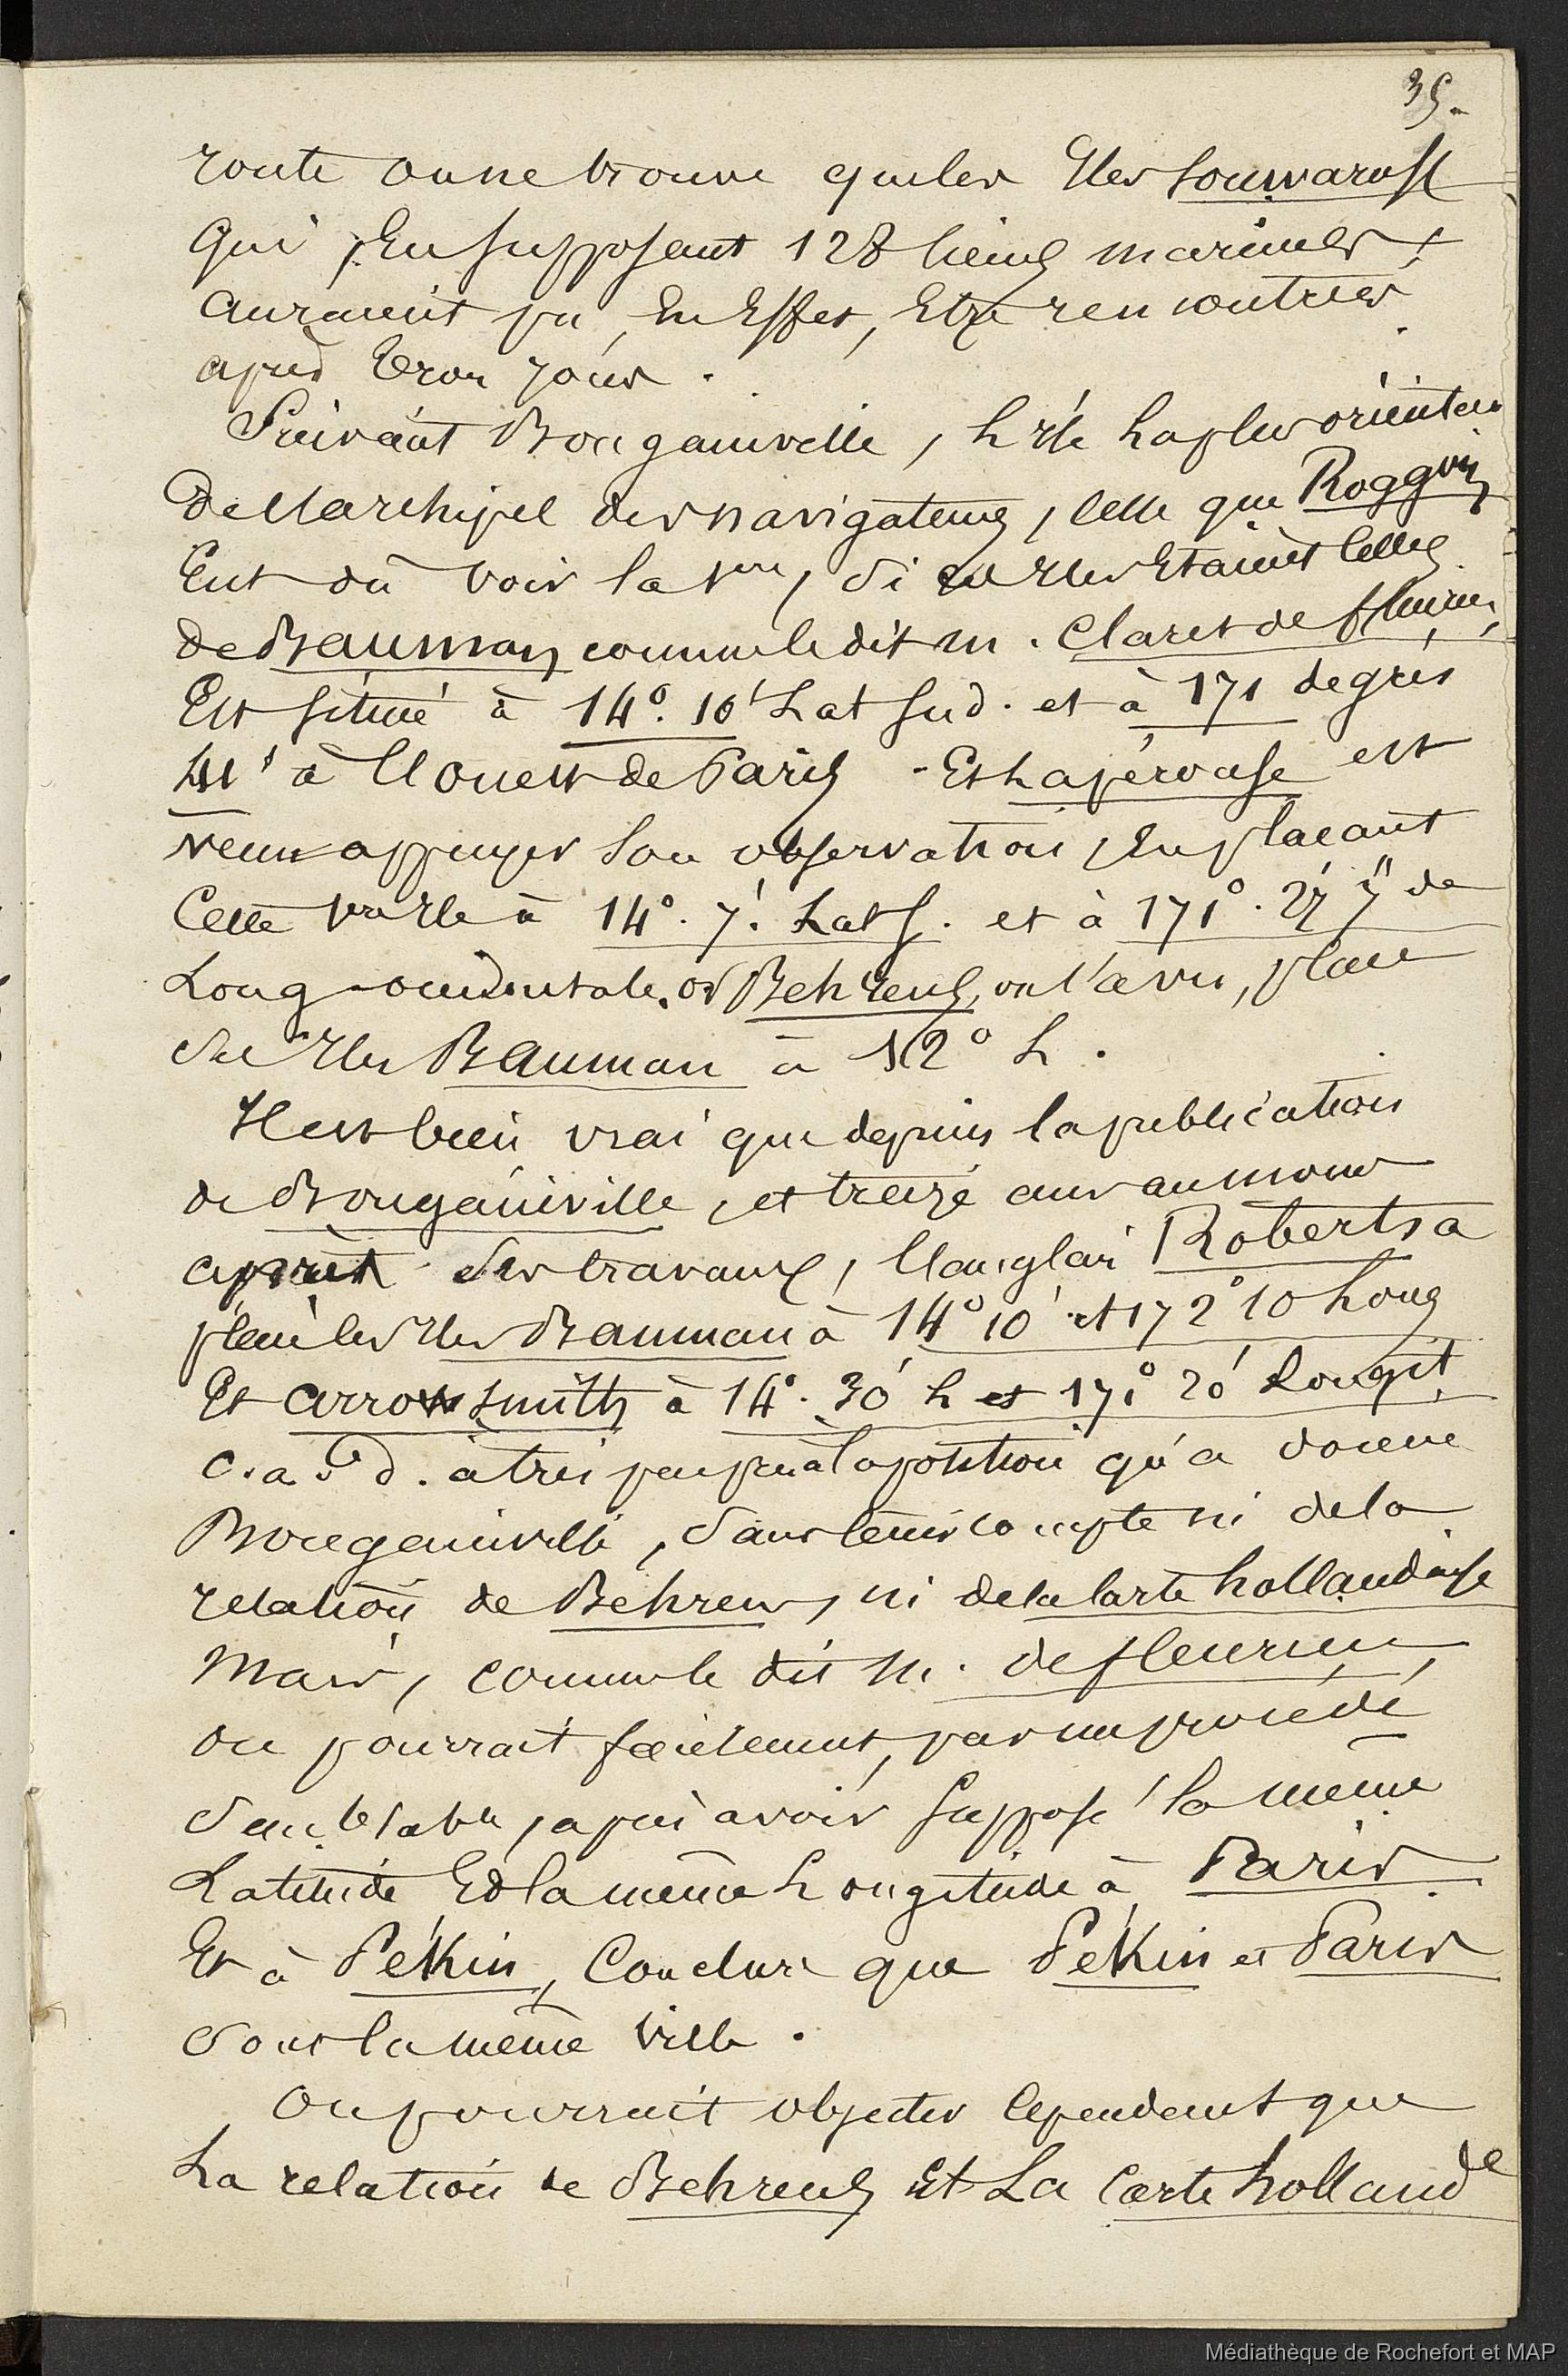 35.
route on ne trouve que les Iles Souwaroff
qui, en supposant 128 lieues marines,
auraient pu, en effet, être rencontrées
après trois jours.
Suivant Bougainville, l'ile la plus orientale
de l'archipel des navigateurs, celle que Roggwin
eut dû voir la 1ere, si ces Iles étaient celles
de Bauman comme le dit M. Claret de fleurieu,
est située à 14°. 10' Lat Sud. et à 171 degrés
41' à l'ouest de Paris - Et Lapérouse est
venu appuyer son observation, en plaçant
cette 1ere Ile à 14°. 7'. Lat S. et à 171°. 27' 7" de
Long occidentale. or Behrens, on l'a vu, place
les Iles Bauman à 12° L.
Il est bien vrai que depuis la publication
de Bougainville, et treize ans au moins
après ses travaux, l'anglais Roberts a
placé les Iles Bauman à 14° 10' et 172° 10 Long
Et arrowsmith à 14°. 30' L et 171° 20' Longit
c. a. d. à très peu près à la position qu'a donné
Bougainville, sans tenir compte ni de la
relation de Behrens, ni de la carte hollandaise
Mais, comme le dit M. de fleurieu,
on pourrait facilement, par un procédé
semblable, après avoir supposé la même
Latitude et la même Longitude à Paris
Et à Pékin, conclure que Pékin et Paris
sont la même ville.
On pourrait objecter cependant que
La relation de Behrens Et La Carte holland^e
Médiathèque de Rochefort et MAP